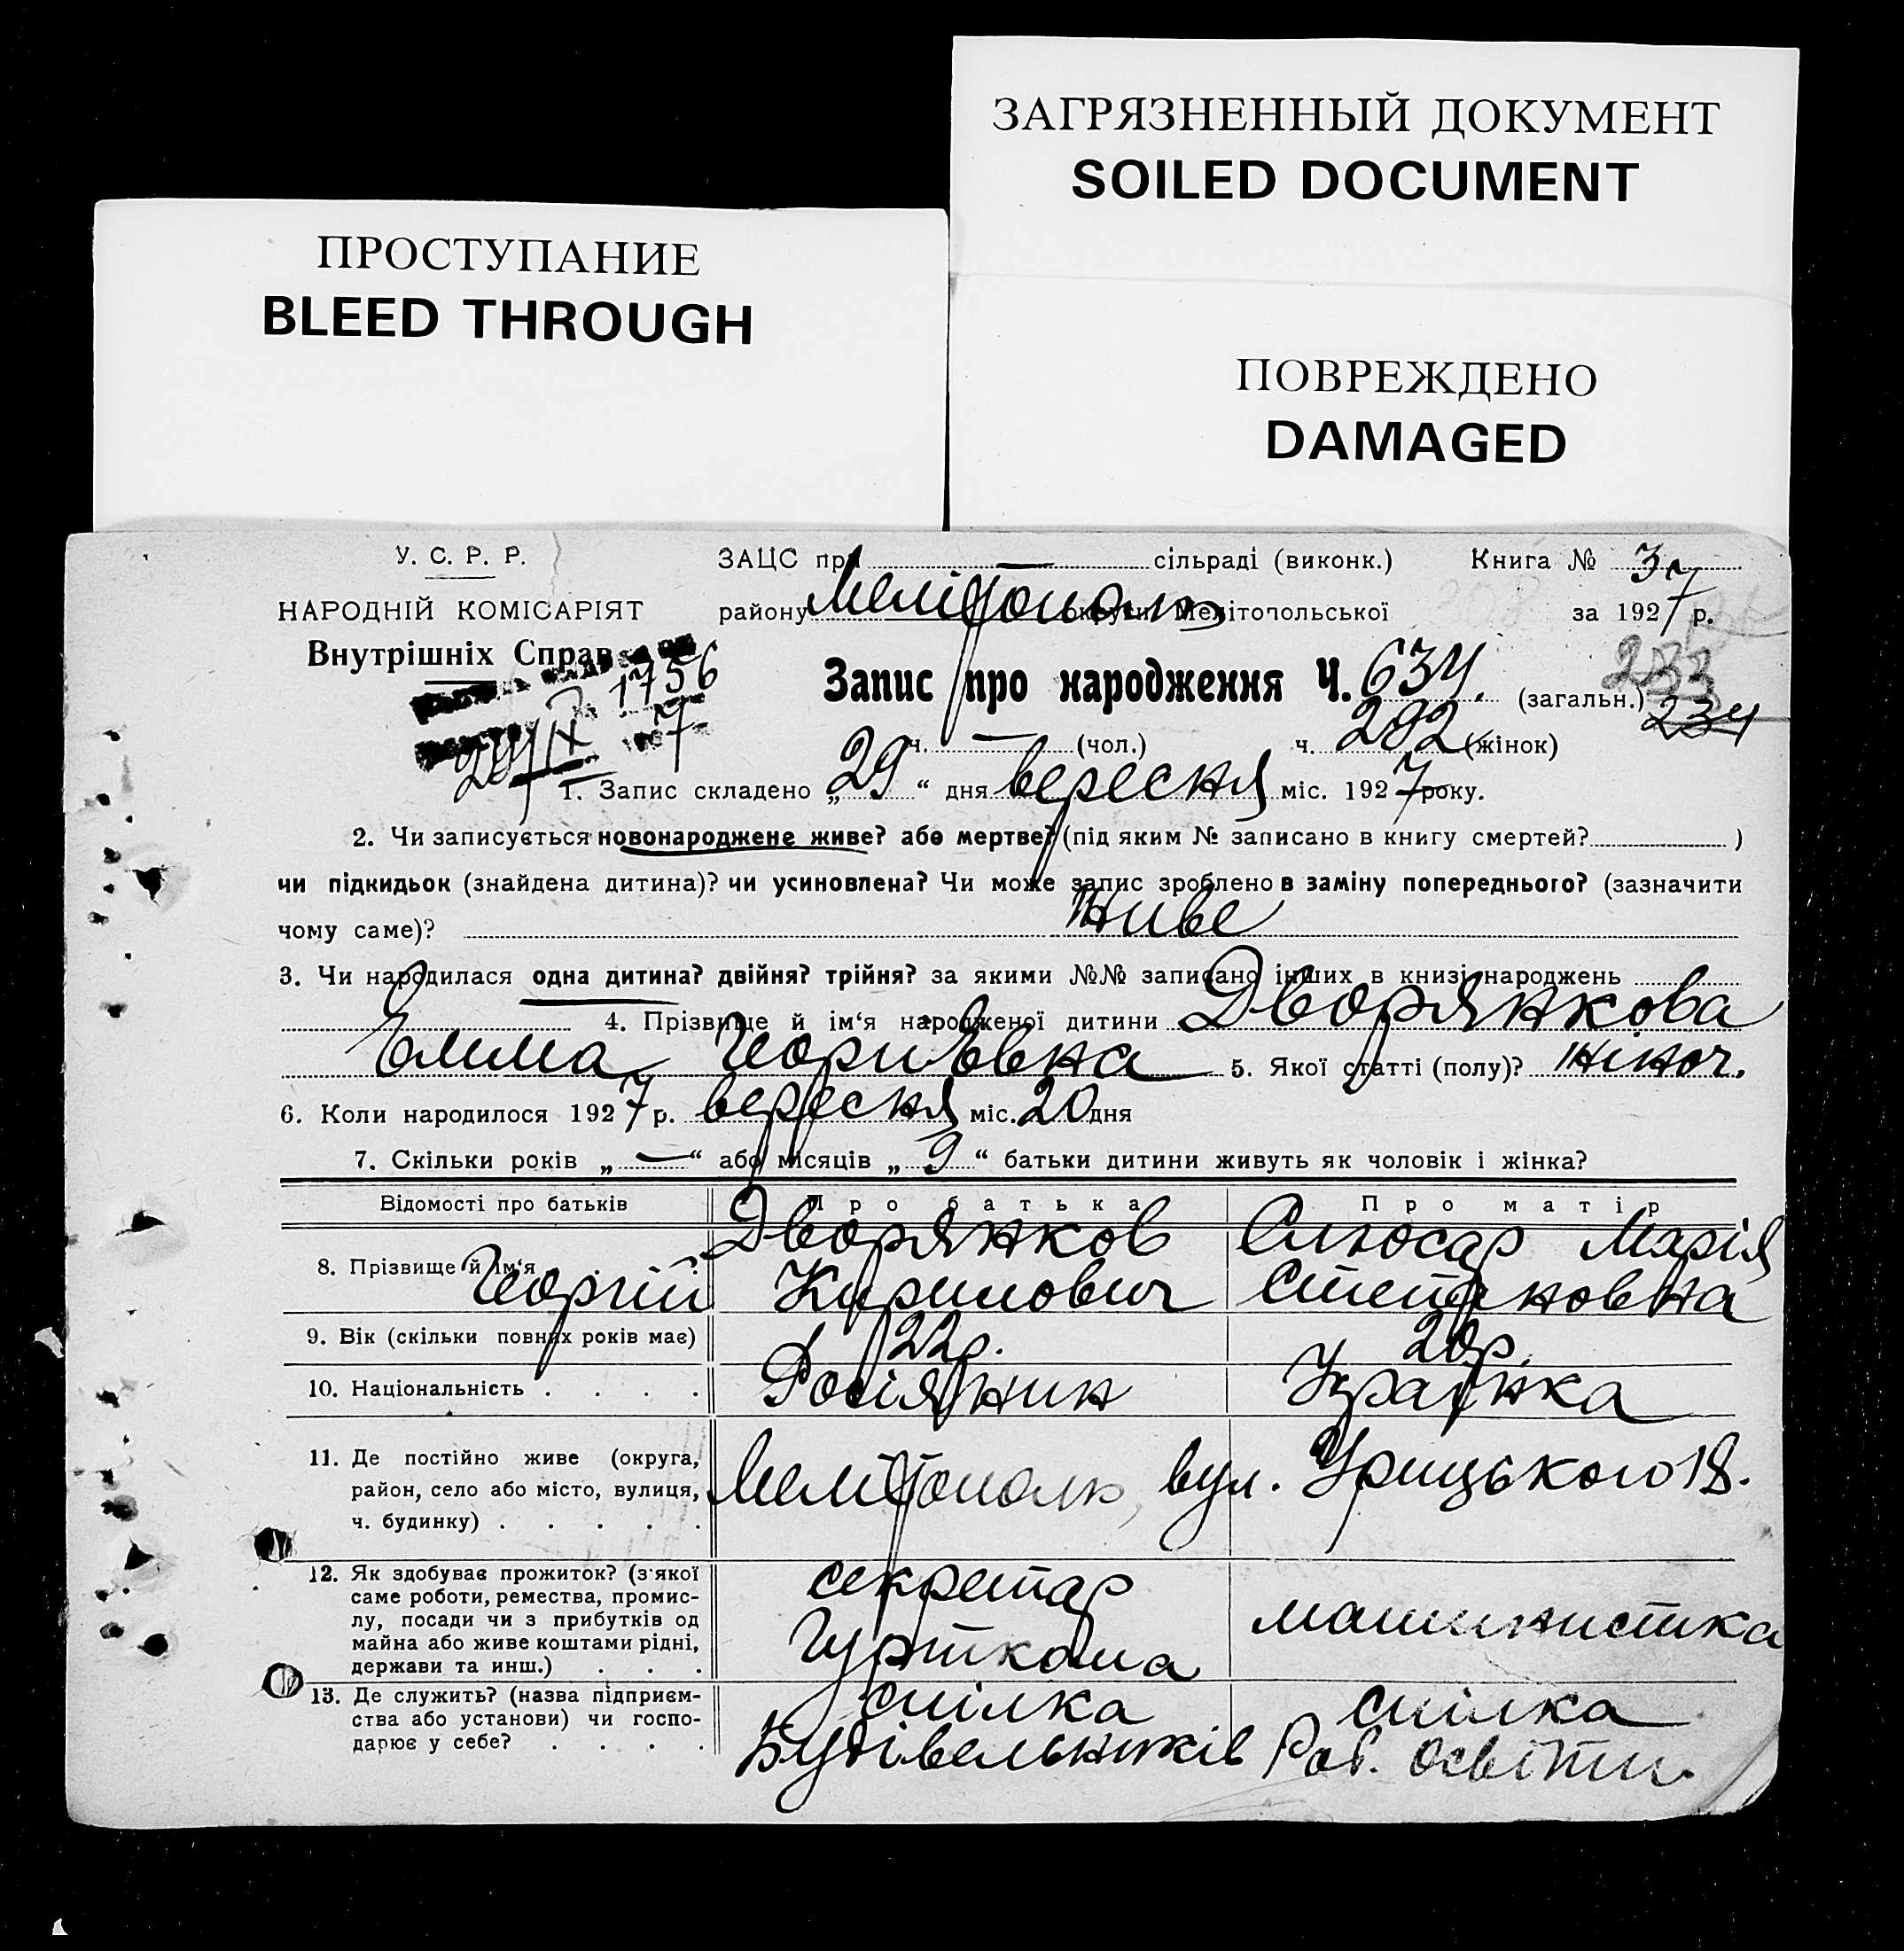 ЗАГРЯЗНЕННЫЙ ДОКУМЕНТ
SOILED DOCUMENT
ПРОСТУПАНИЕ
BLEED THROUGH
ПОВРЕЖДЕНО
DAMAGED
У. С. Р. Р.
НАРОДНІЙ КОМІСАРІЯТ
Внутрішніх Справ
1756
29/IX 7
ЗАЦС при — сільраді (виконк.) Книга № 3
району Мелітополь округи Мелітопольської за 1927 р.
Запис про народження Ч. 634. (загальн.)
233
234
ч. — (чол.) ч. 292 (жінок)
1. Запис складено „29“ дня вересня міс. 1927 року.
2. Чи записується новонароджене живе? або мертве? (під яким № записано в книгу смертей? )
чи підкидьок (знайдена дитина)? чи усиновлена? Чи може запис зроблено в заміну попереднього? (зазначити
чому саме)? Живе
3. Чи народилася одна дитина? двійня? трійня? за якими №№ записано інших в книзі народжень
4. Прізвище й ім‘я народженої дитини Дворянкова
Емма Георгіевна 5. Якої статті (полу)? жіноч.
6. Коли народилося 1927 р. вересня міс. 20 дня
7. Скільки років „—“ або місяців „9“ батьки дитини живуть як чоловік і жінка?
Відомості про батьків Про батька Про матір
8. Прізвище й ім‘я Дворянков Георгій Кирилович Слюсар Марія Степановна
9. Вік (скільки повних років має) 22р. 20р.
10. Національність . . . . Росіянин Українка
11. Де постійно живе (округа,
район, село або місто, вулиця,
ч. будинку) . . . . . Мелітополь, вул. Урицького 18.
12. Як здобуває прожиток? (з‘якої
саме роботи, ремества, промис-
лу, посади чи з прибутків од
майна або живе коштами рідні,
держави та инш.) . . .
секретар
Гурткома
машинистка
13. Де служить? (назва підприєм-
ства або установи) чи госпо-
дарює у себе? . . . .
спілка
Будівельників
спілка
Роб. Освіти.